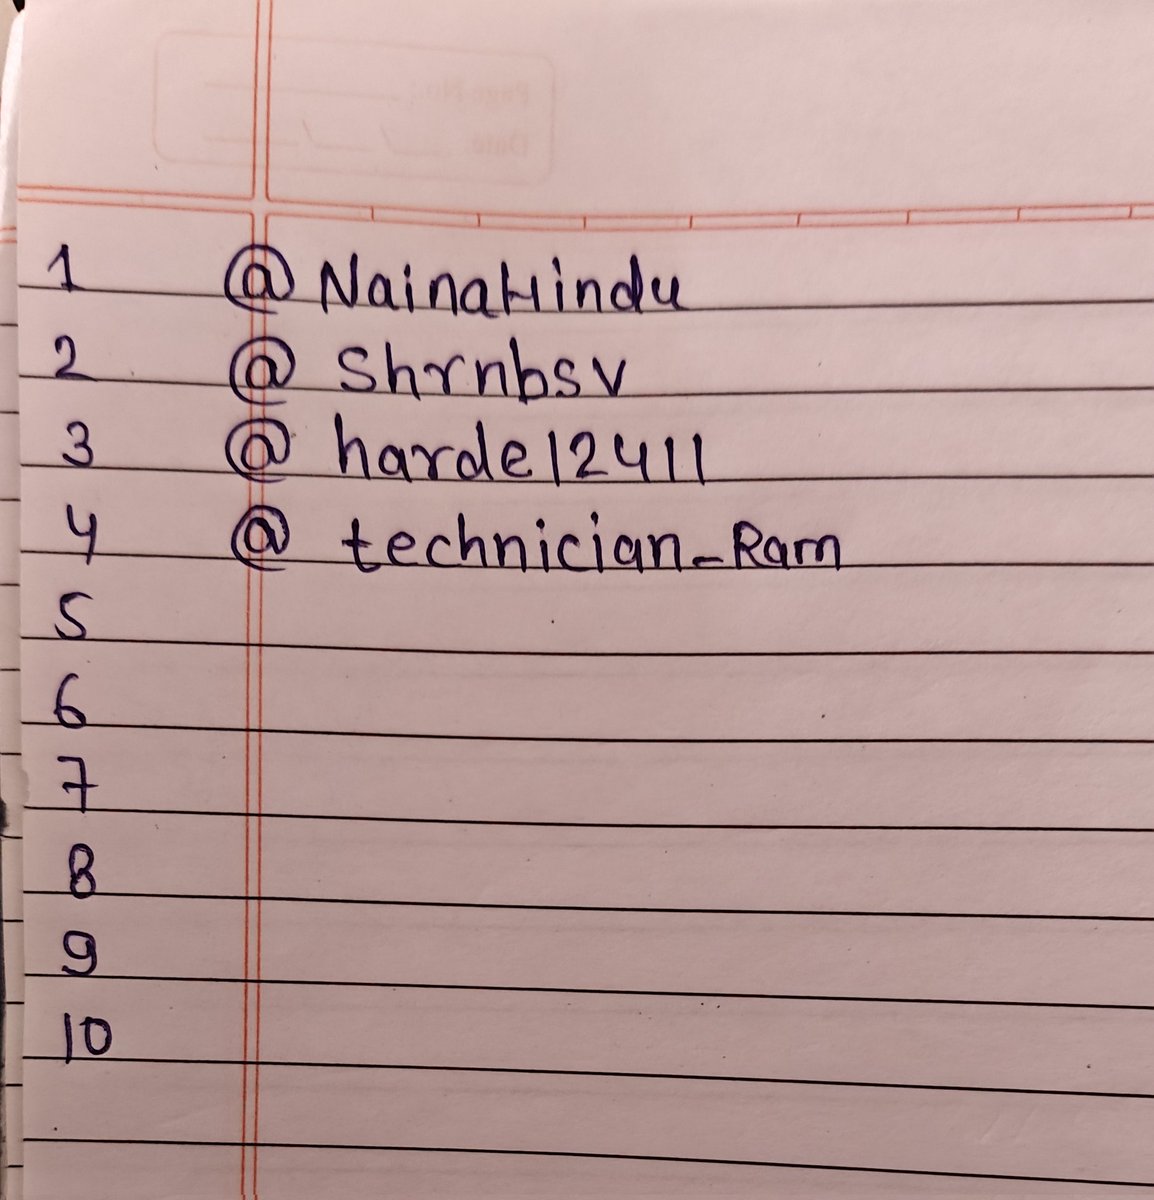 1 @NainaHindu
2 @Shrnbsv
3 @harde12411
4 @technician_Ram
5
6
7
8
9
10